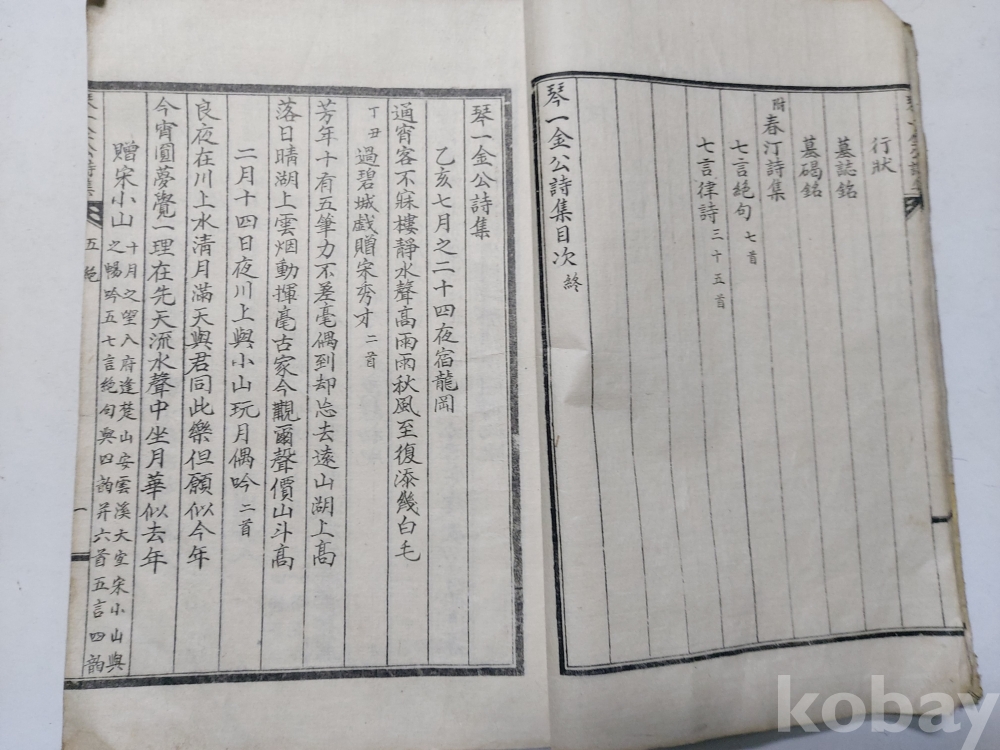 行狀
墓誌銘
墓碣銘
附 春汀詩集
七言絶句 七首
七言律詩 三十五首
琴一金公詩集目次 終
琴一金公詩集
乙亥七月之二十四夜宿龍岡
通宵客不寐樓靜水聲高雨雨秋風至復添幾白毛
丁丑 過碧城戱贈宋秀才 二首
芳年十有五筆力不差毫偶到却忘去遠山湖上高
落日晴湖上雲烟動揮毫古家今觀爾聲價山斗高
二月十四日夜川上與小山玩月偶吟 二首
良夜在川上水清月滿天與君同此樂但願似今年
今宵圓夢覺一理在先天流水聲中坐月華似去年
贈宋小山 十月之望入府逢楚山安雲溪大室宋小山與
之暢吟五七言絶句與四韵幷六首五言四韵
五絶
一
kobay